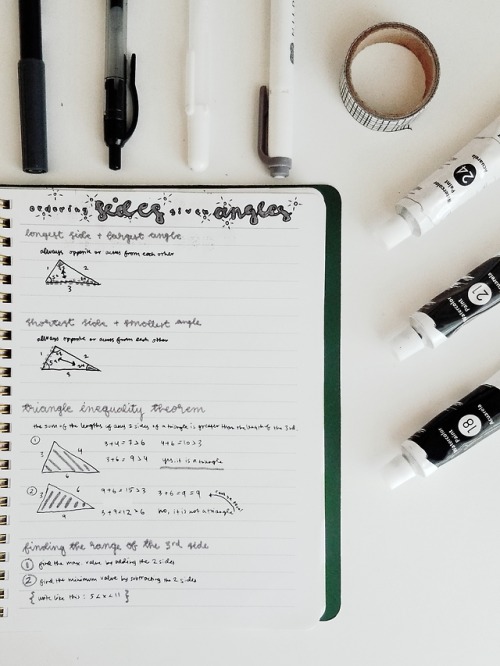 ordering sides given angles
longest side + largest angle
always opposite or across from each other
1 2
3
shortest side + smallest angle
always opposite or across from each other
1 2
3
triangle inequality theorem
the sum of the lengths of any 2 sides of a triangle is greater than the length of the 3rd.
① 3+4=7>6 4+6=10>3
3 4
3+6=9>4 yes, it is a triangle
6
② 9+6=15>3 3+6=9=9
3 6
9
3+9=12>6 no, it is not a triangle
finding the range of the 3rd side
① find the max. value by adding the 2 sides
② find the minimum value by subtracting the 2 sides
{ write like this: 5<x<11 }
24
Watercolor
Paint
21
Watercolor
Paint
18
Watercolor
Paint